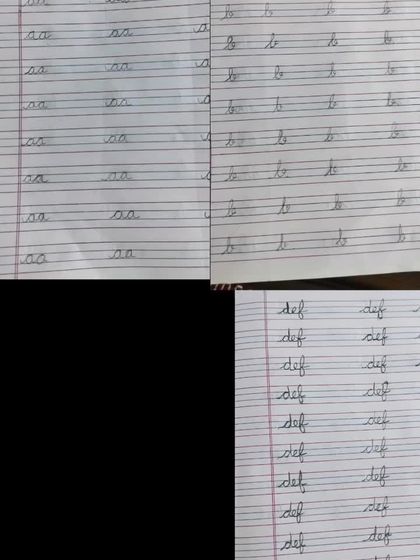 aa aa
aa aa a
aa aa a
aa aa a
aa aa
aa aa
aa aa
aa aa
b b b b
b b b b
b b b b
b b b b
b b b b
b b b b
b b b b
b b b b
def def
def def
def def
def def
def def
def def
def def
def def
def def